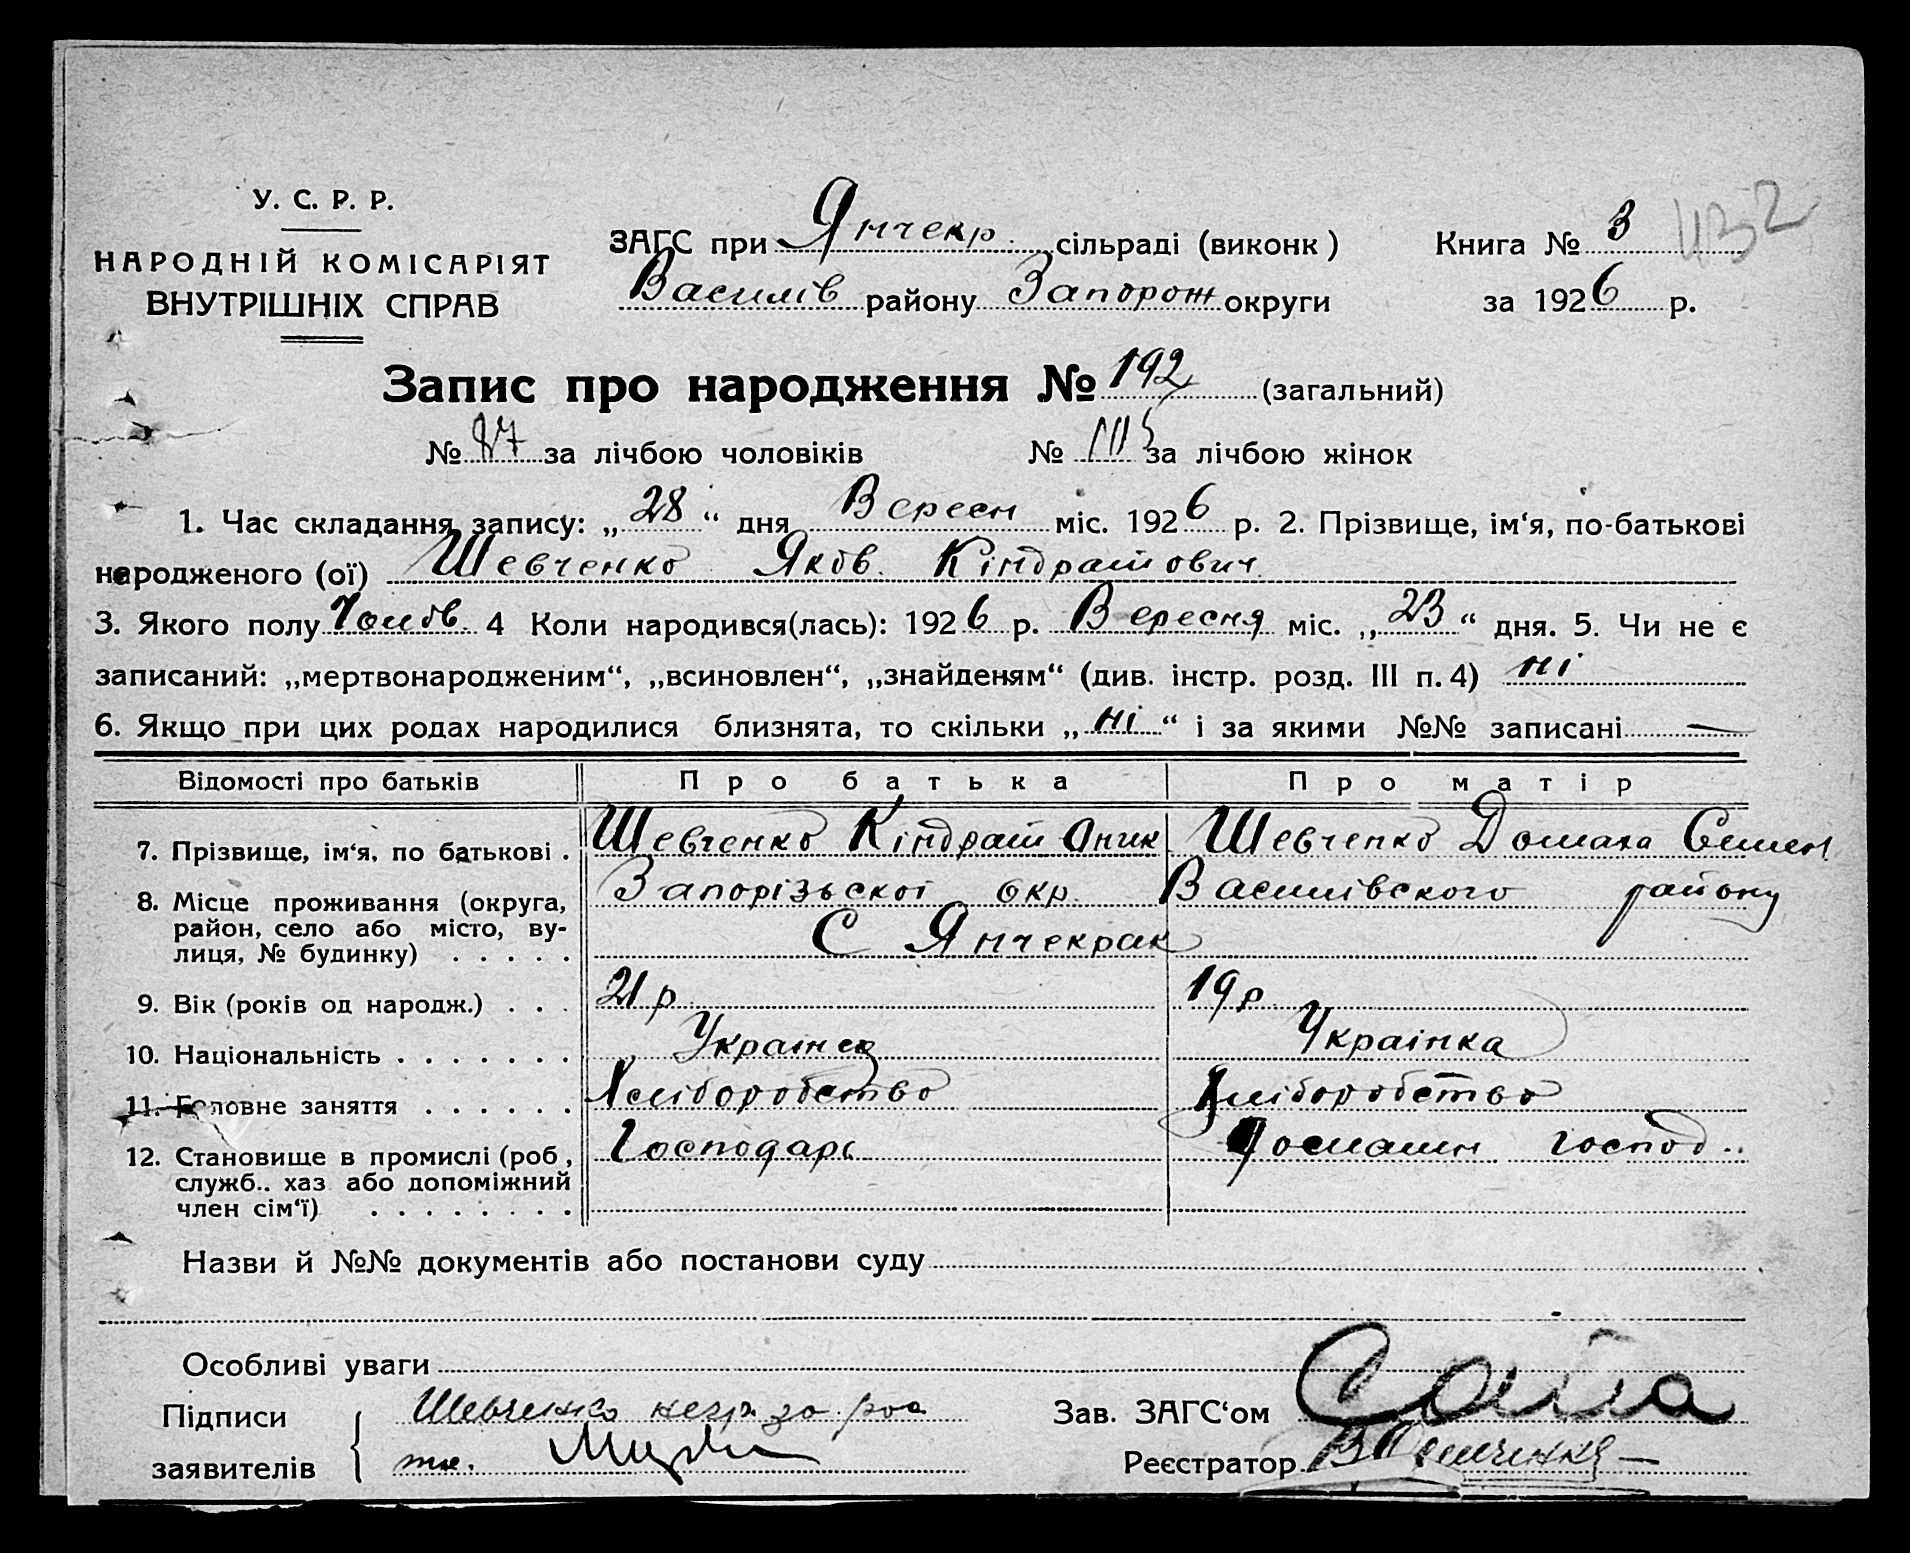 У. С. Р. Р.
НАРОДНІЙ КОМІСАРІЯТ
ВНУТРІШНІХ СПРАВ
ЗАГС при Янчекр. сільраді (виконк)
Василів району Запорож округи
Книга № 3
132
за 1926 р.
Запис про народження № 192 (загальний)
№ 87 за лічбою чоловіків № 105 за лічбою жінок
1. Час складання запису: „28“ дня Вересн міс. 1926 р. 2. Прізвище, ім‘я, по-батькові
народженого (ої) Шевченко Яков. Кіндратович
3. Якого полу Чолов. 4 Коли народився(лась): 1926 р. Вересня міс. „23“ дня. 5. Чи не є
записаний: „мертвонародженим“, „всиновлен“, „знайденям“ (див. інстр. розд. III п. 4) ні
6. Якщо при цих родах народилися близнята, то скільки „ні“ і за якими №№ записані —
Відомості про батьків Про батька Про матір
7. Прізвище, ім‘я, по батькові . Шевченко Кіндрат Оник Шевченко Домаха Семен
8. Місце проживання (округа, Запорізької окр. Василівского району
район, село або місто, ву- С Янчекрак
лиця, № будинку) . . . . .
9. Вік (років од народж.) . . . 21 р 19 р.
10. Національність . . . . . . . Украінец Украінка
11. Головне заняття . . . . . . Хліборобство Хліборобство
12. Становище в промислі (роб, Господарь Домашн господ..
служб.. хаз або допоміжний
член сім‘ї) . . . . . . . .
Назви й №№ документів або постанови суду
Особливі уваги
Підписи Шевченко негр. за
заявителів
Зав. ЗАГС‘ом
Реєстратор